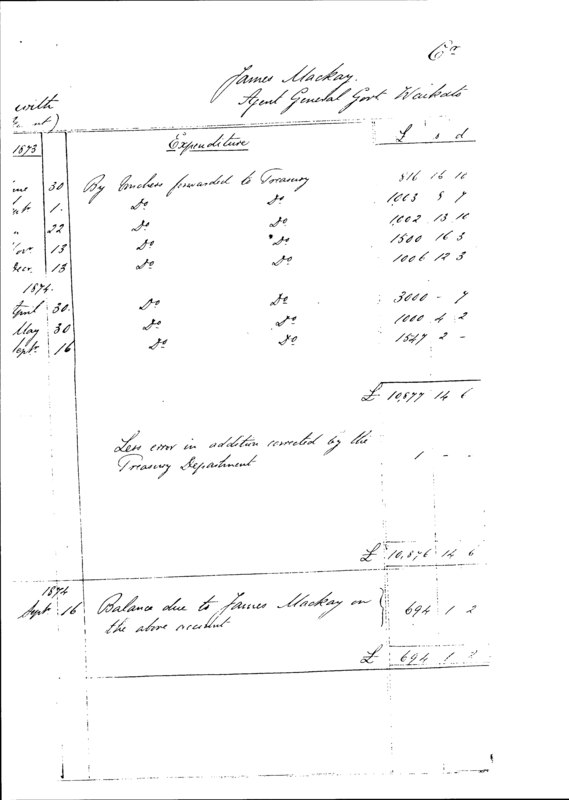 Cr
James Mackay.
Agent General Govt Waikato
with
nt)
1873 Expenditure £ s d
30 By Vouchers forwarded to Treasury 816 16 10
1. Do Do 1003 8 7
" 22 Do Do 1002 13 10
13 Do Do 1500 16 3
Decr. 13 Do Do 1006 12 3
1874.
April 30. Do Do 3000 - 7
May 30 Do Do 1000 4 2
Sept. 16 Do Do 1547 2 -
£ 10,877 14 6
Less error in addition corrected by the
Treasury Department 1 - -
£ 10,876 14 6
1874
Sept. 16 Balance due to James Mackay on
the above account 694 1 2
£ 694 1 2